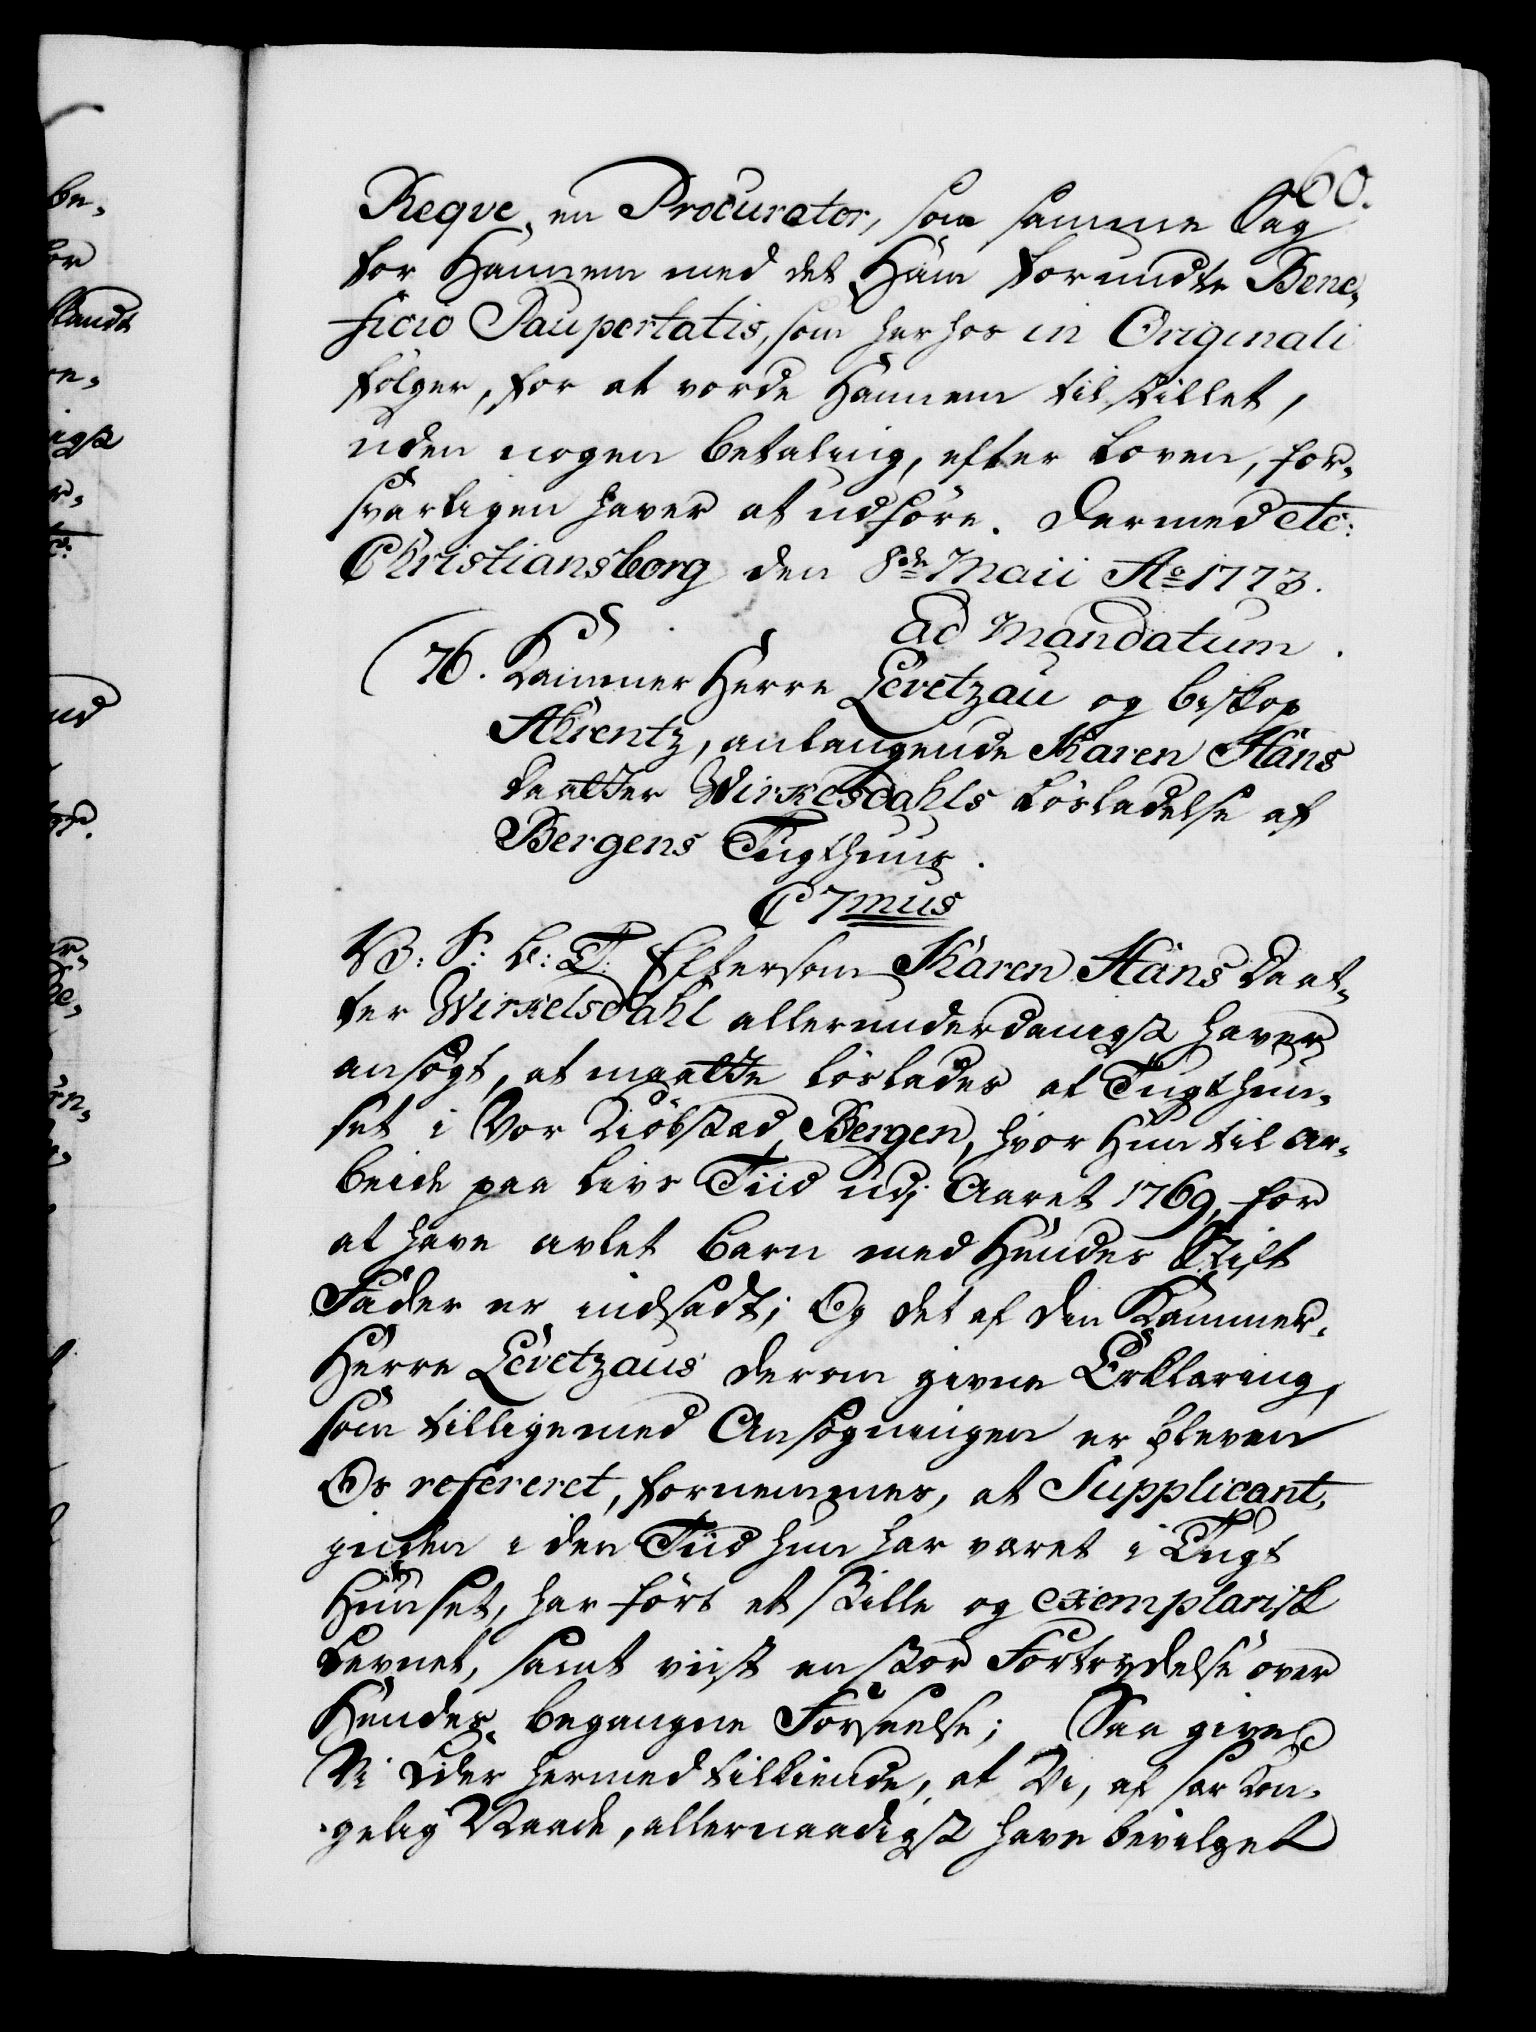 60.
Reqve, en Procurator, som samme Sag
for Hannem med det Ham forundte Bene,
ficio Paupertatis, som her hos in Originali
følger, for at vorde Hannem tilstillet,
uden nogen betaling, efter Loven, for,
svarligen haver at udføre. Dermed etc:
Christiansborg den 8de Maii Ao 1773.
ad Mandatum.
76. Kammer Herre Levetzau og biskop
Ahrentz, anlangende Karen Hans
daatter Wirkesdahls Løsladelse af
Bergens Tugthuus.
C 7mus
V: S: b: T: Eftersom Karen Hans daat,
ter Wirkelsdahl allerunderdanigst haver
ansøgt, at maatte løslades af Tugthuu,
set i Vor Kiøbstad Bergen, hvor Hun til Ar,
beide paa Livs Tiid udj Aaret 1769, for
at have avlet Barn med Hendes Stift
Fader er indsadt; Og det af Den Kammer,
Herre Levetzaus derom givne Erklæring,
som tilligemed Ansøgningen er bleven
Os refereret, fornemmes, at Supplicant,
inden i den Tiid hun har været i Tugt
Huuset, har ført et stille og exemplarisk
Levnet, samt viist en stor Fortrydelse over
Hendes begangne Forseelse; Saa give
Vi Eder hermed tilkiende, at Vi, af sær Kon,
gelig Naade, allernaadigst have bevilget